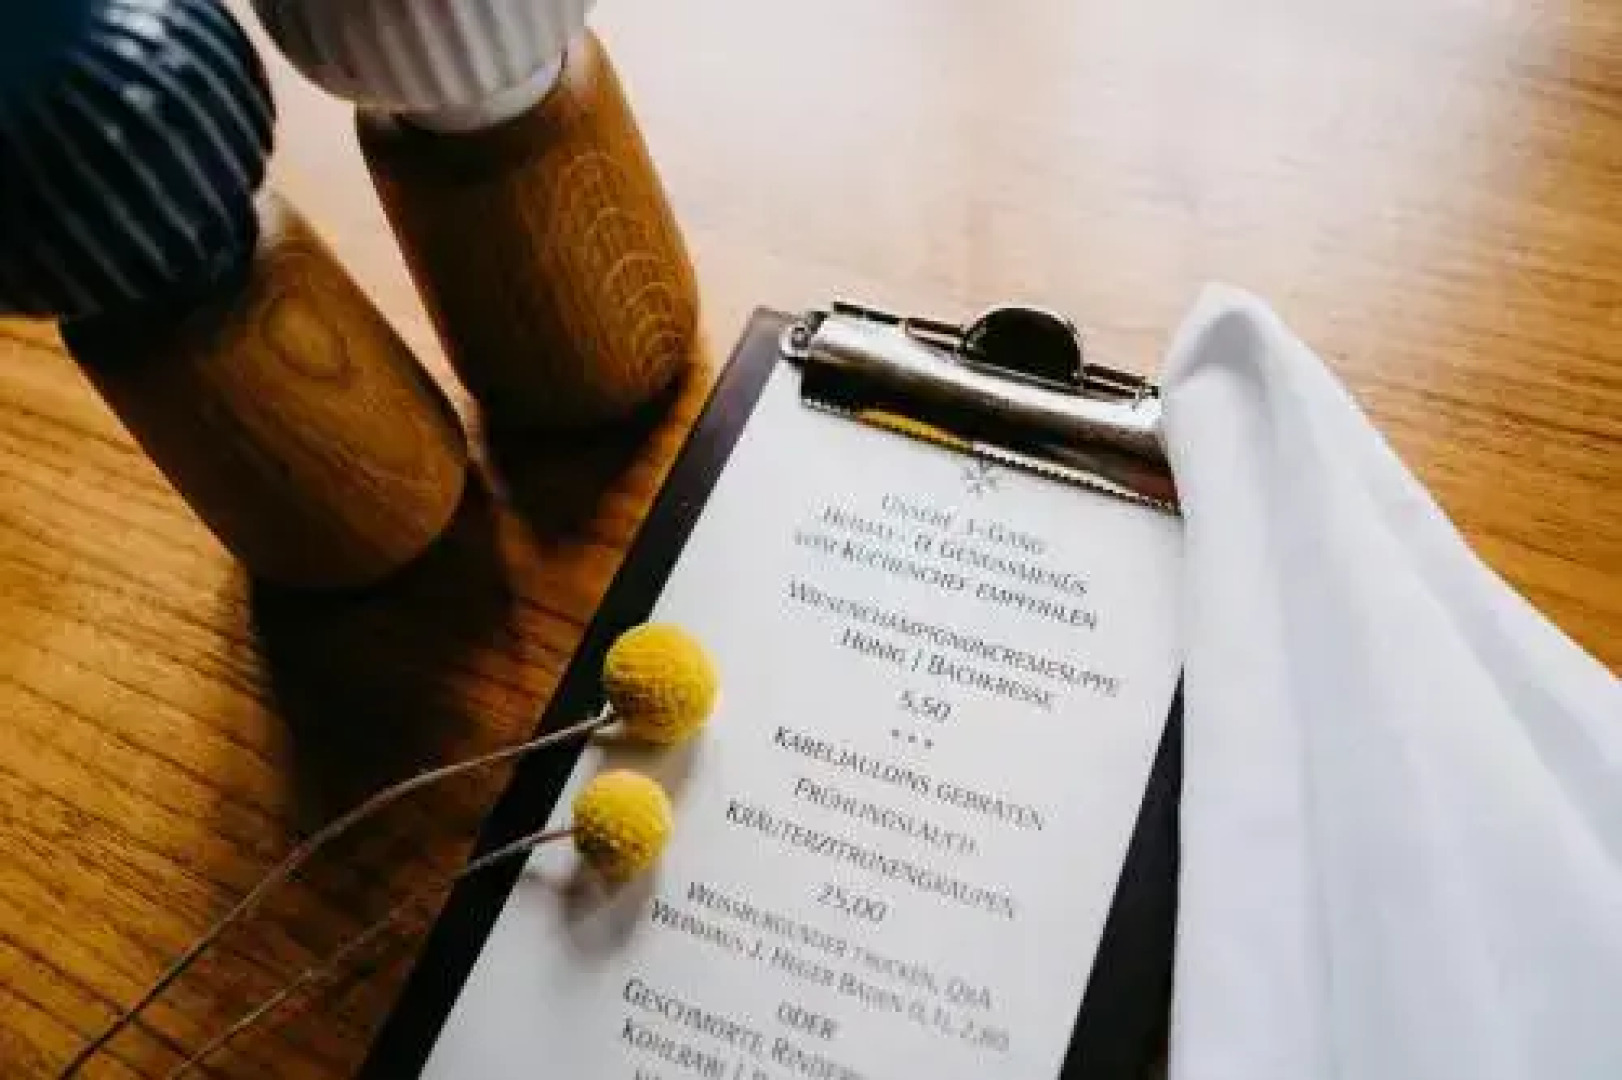 Unsere 3-Gang
Heimat- & Genussmenüs
vom Küchenchef empfohlen
Wiesenchampignoncremesuppe
Honig | Bachkresse
5,50
***
Kabeljauloins gebraten
Frühlingslauch
Kräuterzitronengraupen
25,00
Weissburgunder trocken, QbA
Weinhaus J. Heger Baden 0,1l 7,80
oder
Geschmorte Rinder
Kohlrabi |